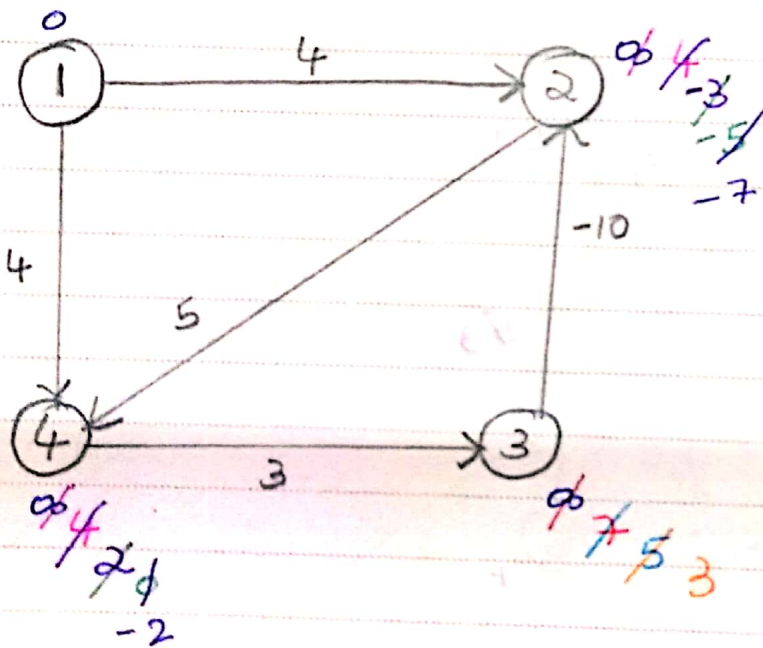 0
1
4
2
∞ 4
-3
-5
-7
4
5
-10
4
3
3
∞ 4
2 0
-2
∞ 7 5 3